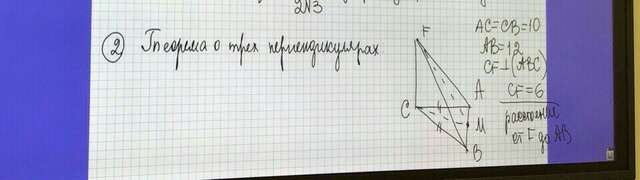 2 N3
② Теорема о трех перпендикулярах
F
C
A
M
B
AC=CB=10
AB=12
CF⊥(ABC)
CF=6
расстояние
от F до AB